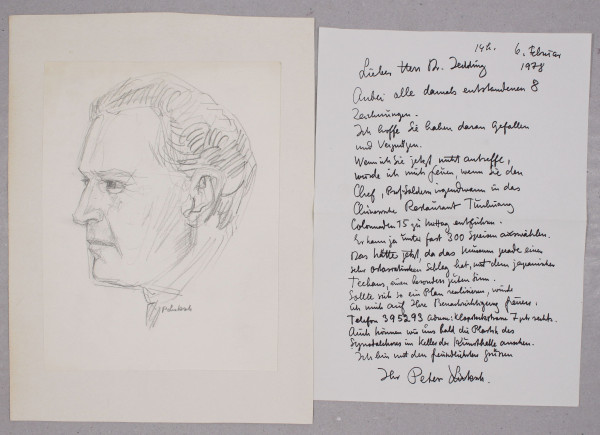 14h. 6. Februar
1978
Lieber Herr Dr. Jedding
Anbei alle damals entstandenen 8
Zeichnungen.
Ich hoffe Sie haben daran Gefallen
und Vergnügen.
Wenn ich Sie jetzt nicht antreffe,
würde ich mich freuen, wenn Sie den
Chef, irgendwann in das
Chinesische Restaurant Tunhuang
Colonnaden 15 zu Mittag entführen.
Er kann ja unter fast 300 Speisen auswählen.
Das hätte jetzt, da das Museum gerade einen
sehr ostasiatischen Schlag hat, mit dem japanischen
Teehaus, einen besonders guten Sinn.
Sollte sich so ein Plan realisieren, würde
ich mich auf Ihre Benachrichtigung freuen.
Telefon 395293 7
Auch können wir uns bald die Plastik des
im Keller der Kunsthalle ansehen.
Ich bin mit den freundlichsten Grüssen
Ihr Peter